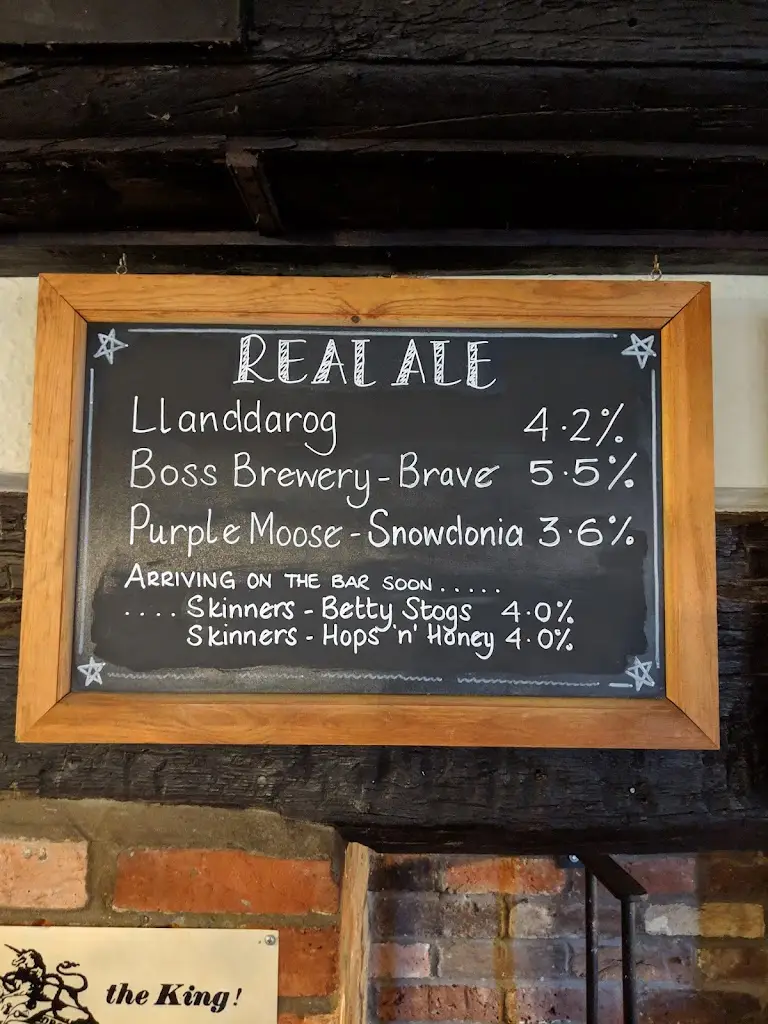 REAL ALE
Llanddarog 4.2%
Boss Brewery - Brave 5.5%
Purple Moose - Snowdonia 3.6%
ARRIVING ON THE BAR SOON .....
.... Skinners - Betty Stogs 4.0%
Skinners - Hops 'n' Honey 4.0%
the King!